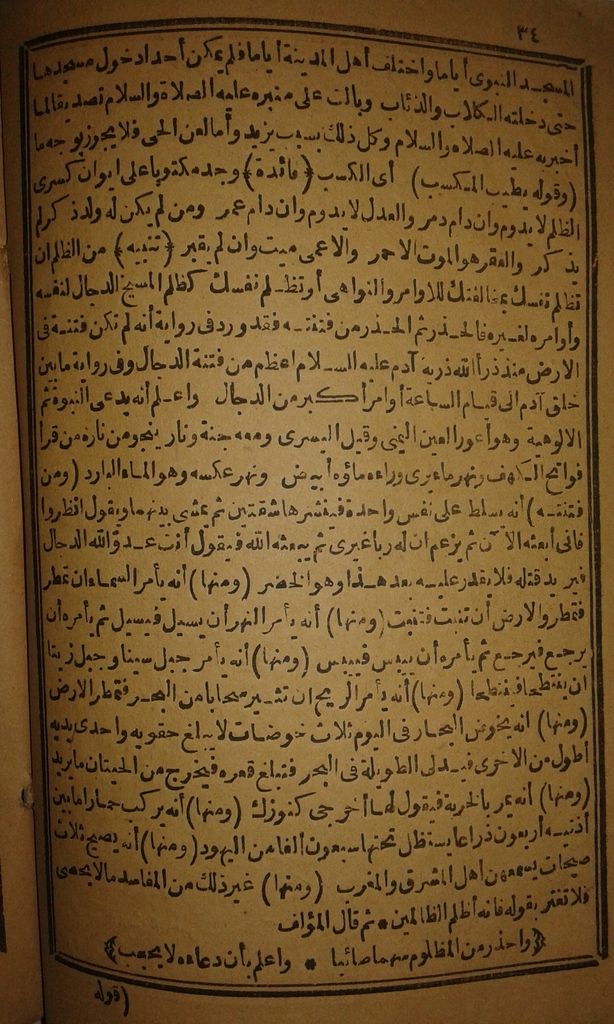 ٣٤
المسجد النبوى أياما واختلف أهل المدينة أياما فلم يمكن أحدا دخول مسجدها
حتى دخلته الكلاب والذئاب وبالت على منبره عليه الصلاة والسلام تصديقا لما
أخبر به عليه الصلاة والسلام وكل ذلك بسبب يزيد وأما لعن الحى فلا يجوز بوجه ما
(وقوله يطيب المكسب) أى الكسب (فائدة) وجد مكتوبا على ايوان كسرى
الظلم لا يدوم وان دام دمر والعدل لا يدوم وان دام عمر ومن لم يكن له ولد ذكر لم
يذكر والفقر هو الموت الاحمر والاعمى ميت وان لم يقبر (تنبيه) من الظلم ان
تظلم نفسك بمخالفتك للاوامر والنواهى أو تظلم نفسك كظلم المسيخ الدجال لنفسه
وأوامره لغيره فالحذر ثم الحذر من فتنته فقد ورد فى رواية أنه لم تكن فتنة فى
الارض منذ ذرأ الله ذرية آدم عليه السلام اعظم من فتنة الدجال وفى رواية ما بين
خلق آدم الى قيام الساعة أوامر أكبر من الدجال واعلم أنه يدعى النبوة ثم
الالوهية وهو أعور العين اليمنى وقيل اليسرى ومعه جنة ونار ينجو من ناره من قرأ
فواتح الكهف ونهر ماء يرى وراءه ماؤه أبيض ونهر عكسه وهو الماء البارد (ومن
فتنته) أنه يسلط على نفس واحدة فينشرها شقتين ثم يمشى بينهما ويقول انظروا
فانى أبعثه الآن ثم يزعم ان له ربا غيرى ثم يبعثه الله فيقول أنت عدو الله الدجال
فيريد قتله فلا يقدر عليه بعد هذا وهو الخضر (ومنها) أنه يأمر السماء ان تمطر
فتمطر والارض أن تنبت فتنبت (ومنها) أنه يأمر النهر أن يسيل فيسيل ثم يأمره أن
يرجع فيرجع ثم يأمره أن ييبس فييبس (ومنها) أنه يأمر جبل سينا وجبل زيتا
ان ينتطحا فينتطحا (ومنها) أنه يأمر الريح ان تثير سحابا من البحر فتمطر الارض
(ومنها) انه يخوض البحار فى اليوم ثلاث خوضات لا يبلغ حقويه واحدى يديه
أطول من الاخرى فيدلى الطويلة فى البحر فتبلغ قعره فيخرج من الحيتان ما يريد
(ومنها) أنه يمر بالخربة فيقول لها أخرجى كنوزك (ومنها) أنه يركب حمارا ما بين
أذنيه أربعون ذراعا يستظل تحتها سبعون ألفا من اليهود (ومنها) أنه يصيح ثلاث
صيحات يسمعهن أهل المشرق والمغرب (ومنها) غير ذلك من المفاسد مالا يحصى
فلا تغتر بقوله فانه أظلم الظالمين * ثم قال المؤلف
﴿واحذر من المظلوم سهما صائبا * واعلم بأن دعاءه لا يحجب﴾
(قوله